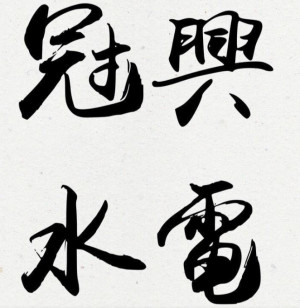 冠興
水電